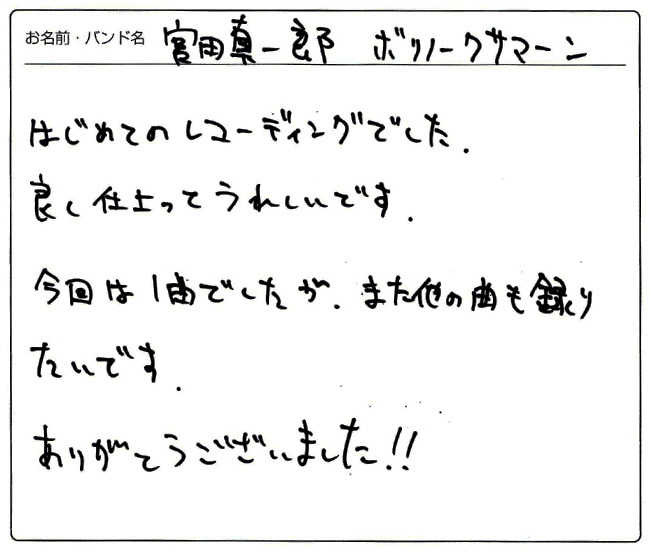 お名前・バンド名 宮田真一郎 ボリノークサマーン
はじめてのレコーディングでした.
良く仕上ってうれしいです.
今回は1曲でしたが、また他の曲も録り
たいです.
ありがとうございました!!